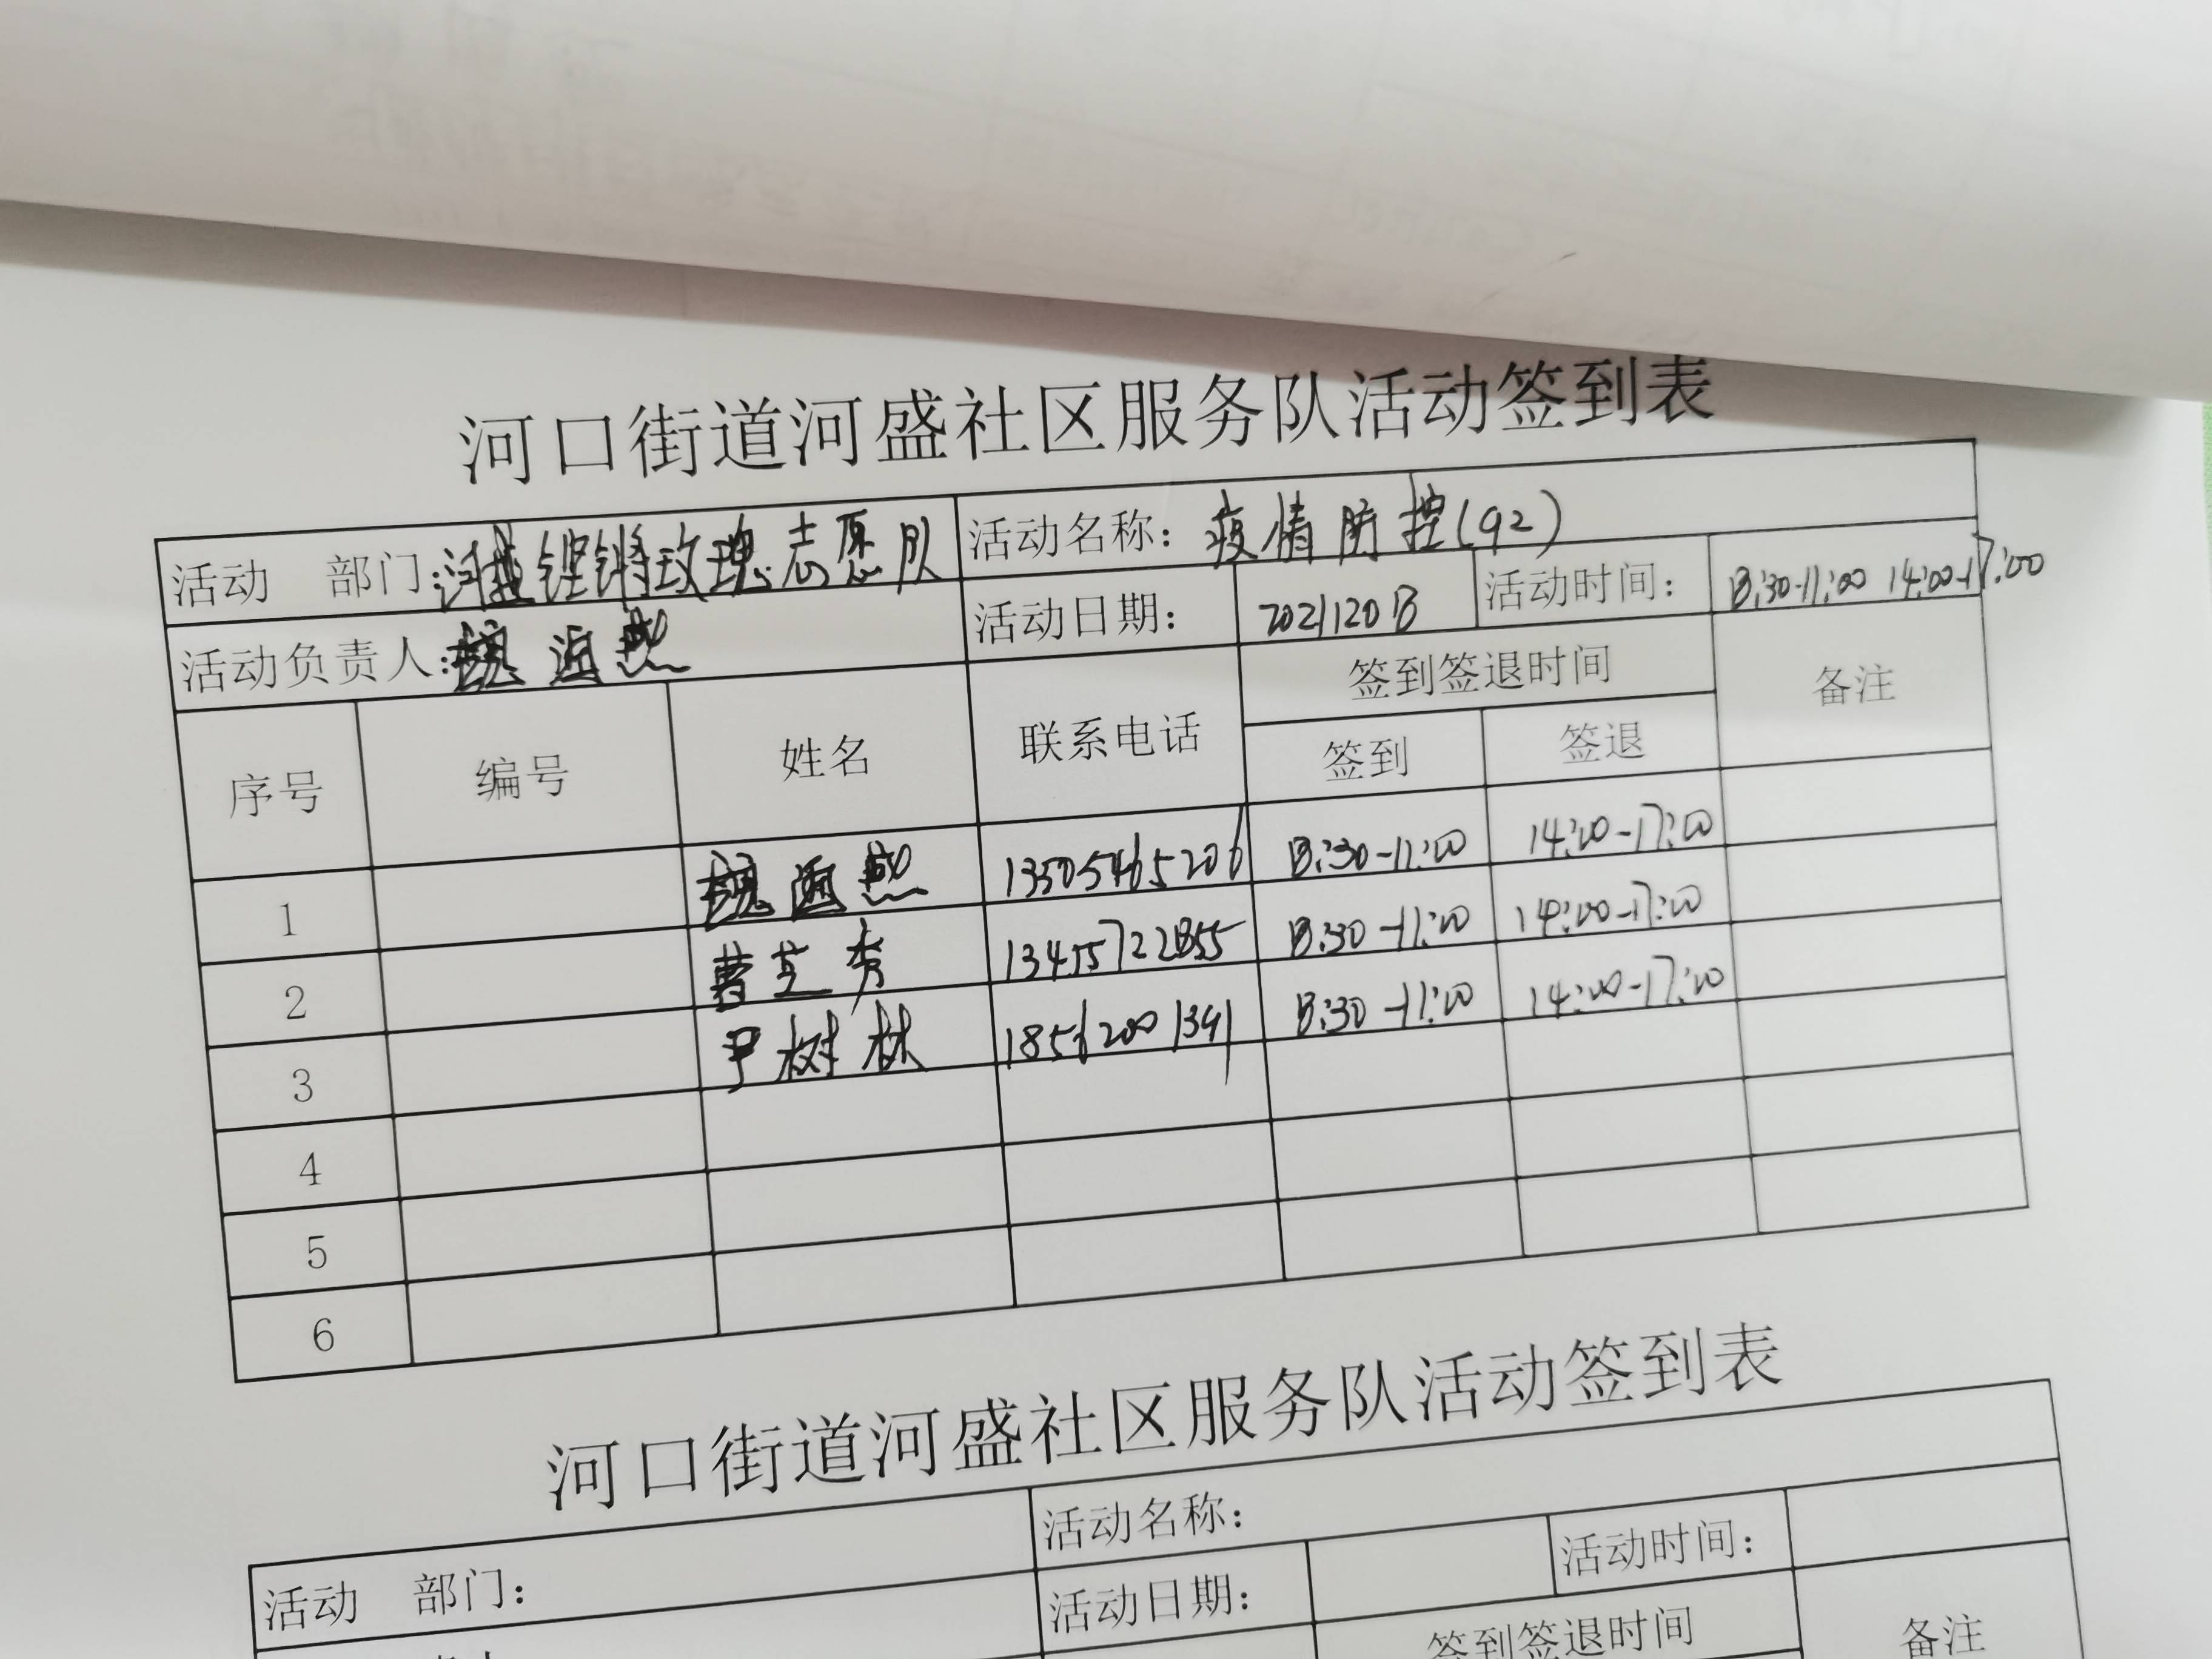 河口街道河盛社区服务队活动签到表
活动 部门：河盛铿锵玫瑰志愿队 活动名称：疫情防控(92)
活动负责人： 活动日期： 20211208 活动时间： 8:30-11:00 14:00-17:00
序号 编号 姓名 联系电话 签到签退时间 备注
签到 签退
1 13505465206 8:30-11:00 14:00-17:00
2 曹芝秀 13455722855 8:30-11:00 14:00-17:00
3 尹树林 18562001391 8:30-11:00 14:00-17:00
4
5
6
河口街道河盛社区服务队活动签到表
活动 部门： 活动名称：
活动日期： 活动时间：
签到签退时间 备注